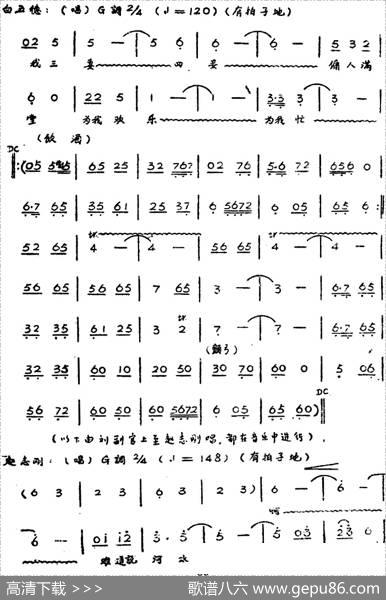 白五德：（唱）G調 2/4 （♩=120）（有拍子地）
02 5 | 5 — | 5 6 | 6 — | 6 — | 5 3 2 |
我三妾 四妾 俩人满
6 0 | 22 5 | 1 — | 1 — | 3·3 3 | 3 — |
堂 为我欢乐 为我忙
（飲酒）
DC
65 25 | 32 767 | 02 76 | 5·6 72 | 656 0 |
6·7 65 | 35 61 | 25 37 | 6 5672 | 6 05 | 65 6 :|
52 65 | 4 — | 4 — | 56 65 | 4 — | 4 — |
56 65 | 56 65 | 7 65 | 3 — | 3 — | 6·7 65 |
32 35 | 61 25 | 3 2 | 7 — | 7 — | 6·7 65 |
32 35 | 60 10 | 20 50 | 30 70 | 60 0 | 5 06 |
DC
56 72 | 60 50 | 60 5672 | 6 05 | 65 60) ||
（以下由刘副官上至赵志刚唱，都在音乐中进行）.
赵志刚：（唱）G調 2/4 （♩=148）（有拍子地）
(6 3 | 2 3 | 6 3 | 2 3) | 6 — | 6 — |
6 — | 01 12 | 3· 5 | 5 — | 5 03 | 23 6 |
难道説 河水
高清下载 >>>
歌谱八六 www.gepu86.com